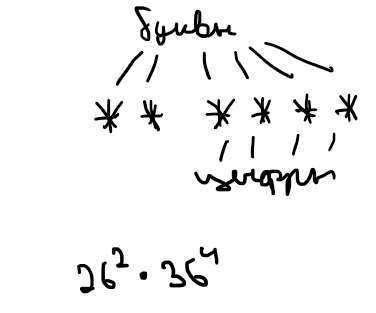 буквы
* * * * * *
цифры
26² · 36⁴